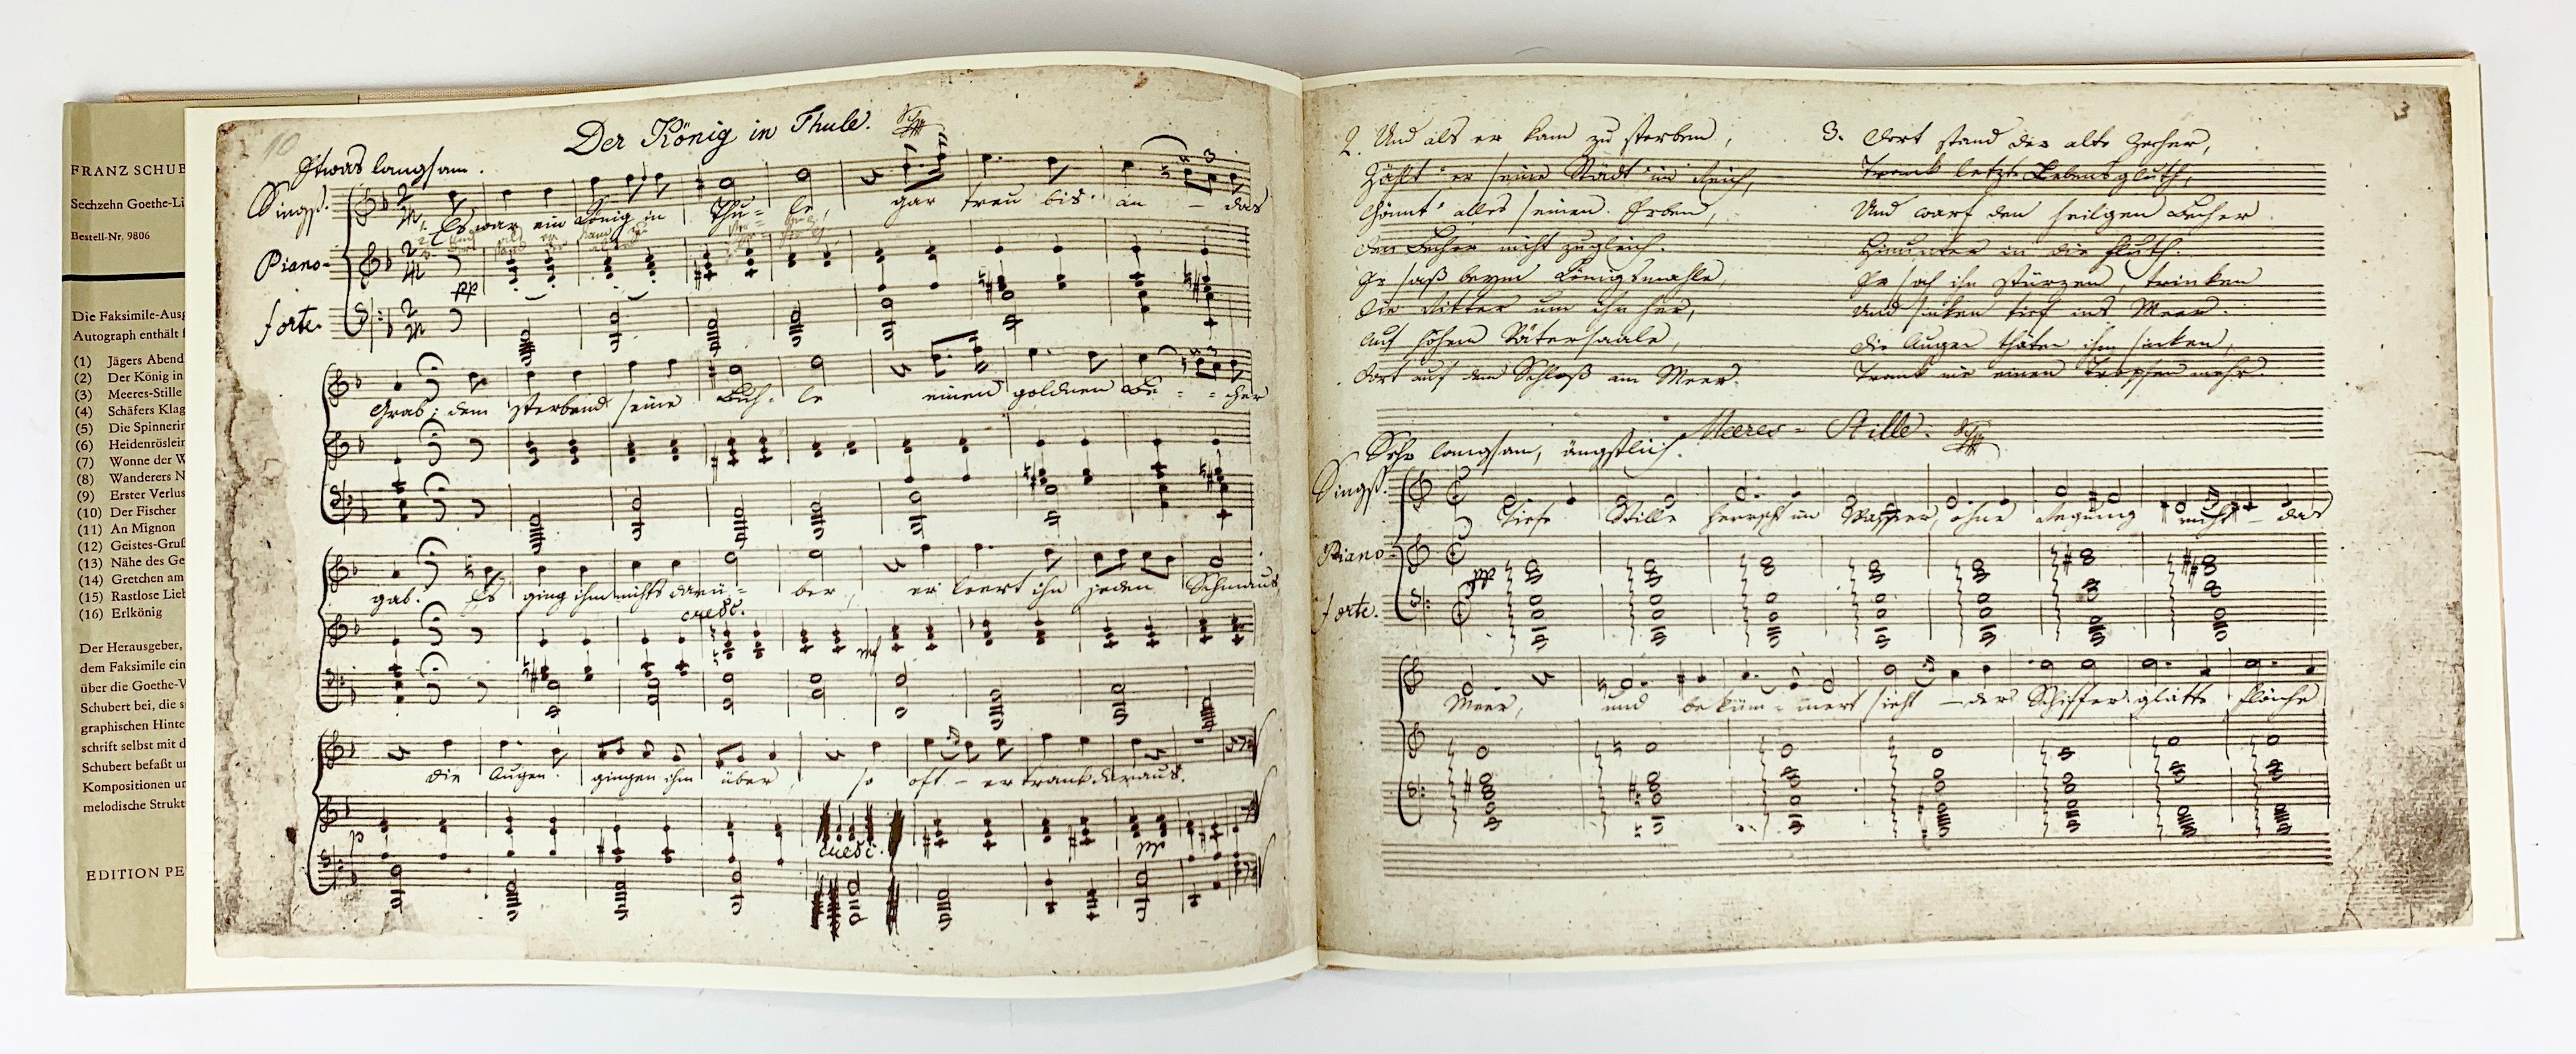 FRANZ SCHUB
Sechzehn Goethe-Li
Bestell-Nr. 9806
Die Faksimile-Ausg
Autograph enthält f
(1) Jägers Abend
(2) Der König in
(3) Meeres-Stille
(4) Schäfers Klag
(5) Die Spinnerin
(6) Heidenröslein
(7) Wonne der W
(8) Wanderers N
(9) Erster Verlus
(10) Der Fischer
(11) An Mignon
(12) Geistes-Gruß
(13) Nähe des Ge
(14) Gretchen am
(15) Rastlose Lieb
(16) Erlkönig
Der Herausgeber,
dem Faksimile ein
über die Goethe-V
Schubert bei, die s
graphischen Hinte
schrift selbst mit d
Schubert befaßt un
Kompositionen un
melodische Strukt
EDITION PE
10
Der König in Thule.
Etwas langsam.
Singst.
1. Es war ein König in Thu- le, gar treu bis an - das
Piano-
pp
forte.
Grab; dem sterbend seine Buh- le einen goldnen Be- - cher
gab. Es ging ihm nichts darü- ber, er leert ihn jeden Schmaus
cresc.
mf
die Augen gingen ihm über, so oft - er trank daraus.
p
cresc.
pp
3
2. Und als er kam zu sterben,
Zählt' er seine Städt' im Reich,
Gönnt' alles seinen Erben,
Den Becher nicht zugleich.
Er saß beym Königsmahle,
Die Ritter um ihn her,
Auf hohem Vätersaale,
Dort auf dem Schloß am Meer.
3. Dort stand der alte Zecher,
Trank letzte Lebensgluth,
Und warf den heilgen Becher
Hinunter in die Fluth.
Er sah ihn stürzen, trinken
Und sinken tief ins Meer.
Die Augen thäten ihm sinken,
Trank nie einen Tropfen mehr.
Meeres-Stille.
Sehr langsam, ängstlich.
Singst.
Tiefe Stille herrscht im Wasser, ohne Regung ruht - das
Piano-
pp
forte.
Meer, und beküm- mert sieht - der Schiffer glatte Fläche